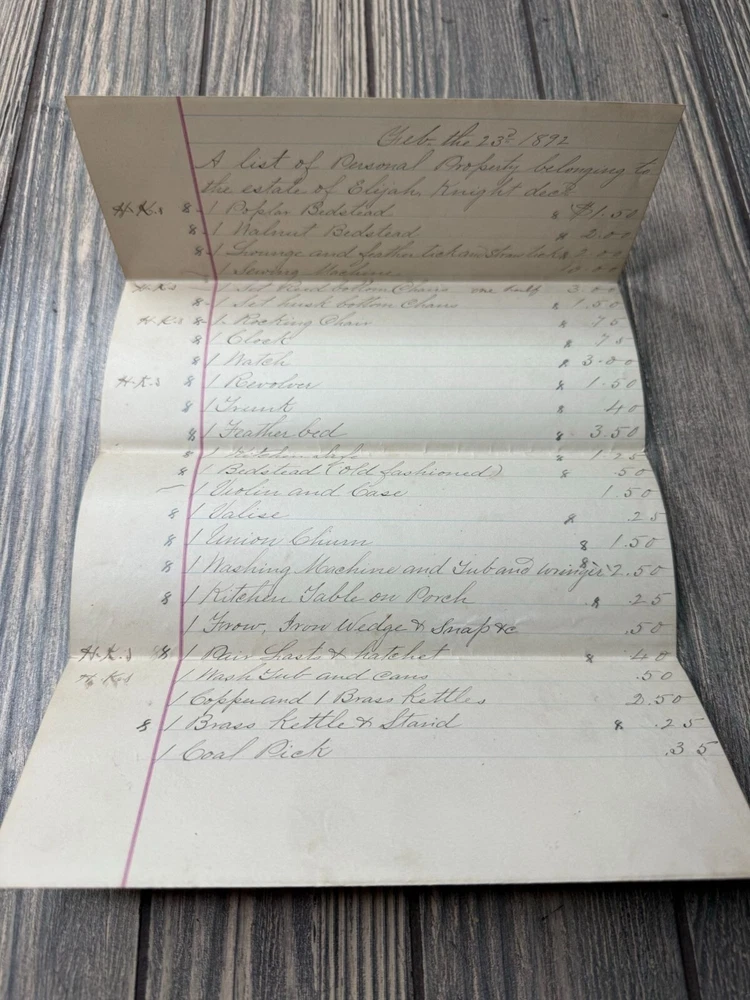 Feb. the 23d 1892
A list of Personal Property belonging to
the estate of Elijah Knight decd
H.K.s 8 1 Poplar Bedstead 8 $1.50
8 1 Walnut Bedstead 8 2.00
8 1 Lounge and feather tick and Straw tick 8 2.00
1 Sewing Machine 10.00
H.K.s 1 Set bottom Chairs one half 3.00
8 1 Set husk bottom Chairs 8 1.50
H.K.s 8 1 Rocking Chair 8 .75
8 1 Clock 8 .75
8 1 Watch 8 3.00
H.K.s 8 1 Revolver 8 1.50
8 1 Trunk 8 .40
8 1 Feather bed 8 3.50
8 1 Kitchen safe 8 1.25
8 1 Bedstead (old fashioned) 8 .50
– 1 Violin and Case 1.50
8 1 Valise 8 .25
8 1 Union Churn 8 1.50
8 1 Washing Machine and Tub and wringer 8 2.50
8 1 Kitchen Table on Porch 8 .25
1 Frow, Iron Wedge & Snap &c .50
H.K.s 8 1 Pair Lasts & hatchet 8 .40
H.K.s 1 Wash Tub and Cans .50
1 Copper and 1 Brass Kettles 2.50
8 1 Brass Kettle & Stand 8 .25
1 Coal Pick .35